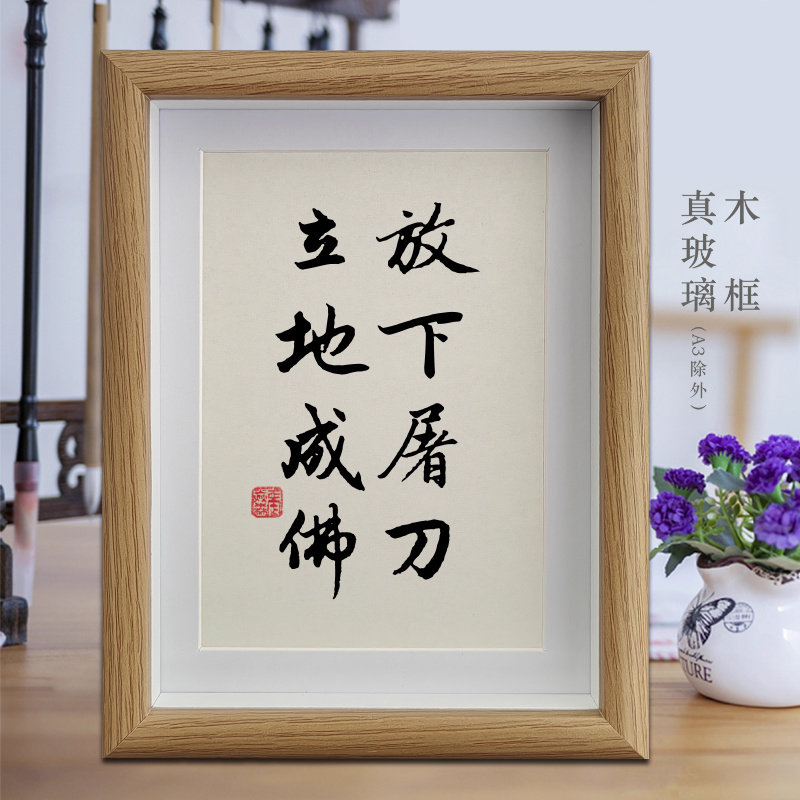 放下屠刀
立地成佛
木框
真玻璃(A3除外)
TURE